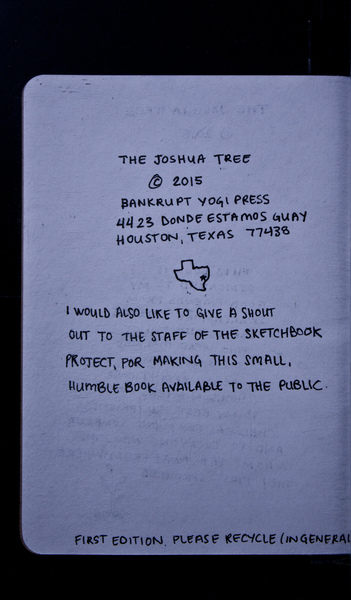 THE JOSHUA TREE
© 2015
BANKRUPT YOGI PRESS
4423 DONDE ESTAMOS GUAY
HOUSTON, TEXAS 77438
I WOULD ALSO LIKE TO GIVE A SHOUT
OUT TO THE STAFF OF THE SKETCHBOOK
PROJECT, FOR MAKING THIS SMALL,
HUMBLE BOOK AVAILABLE TO THE PUBLIC.
FIRST EDITION. PLEASE RECYCLE (IN GENERAL